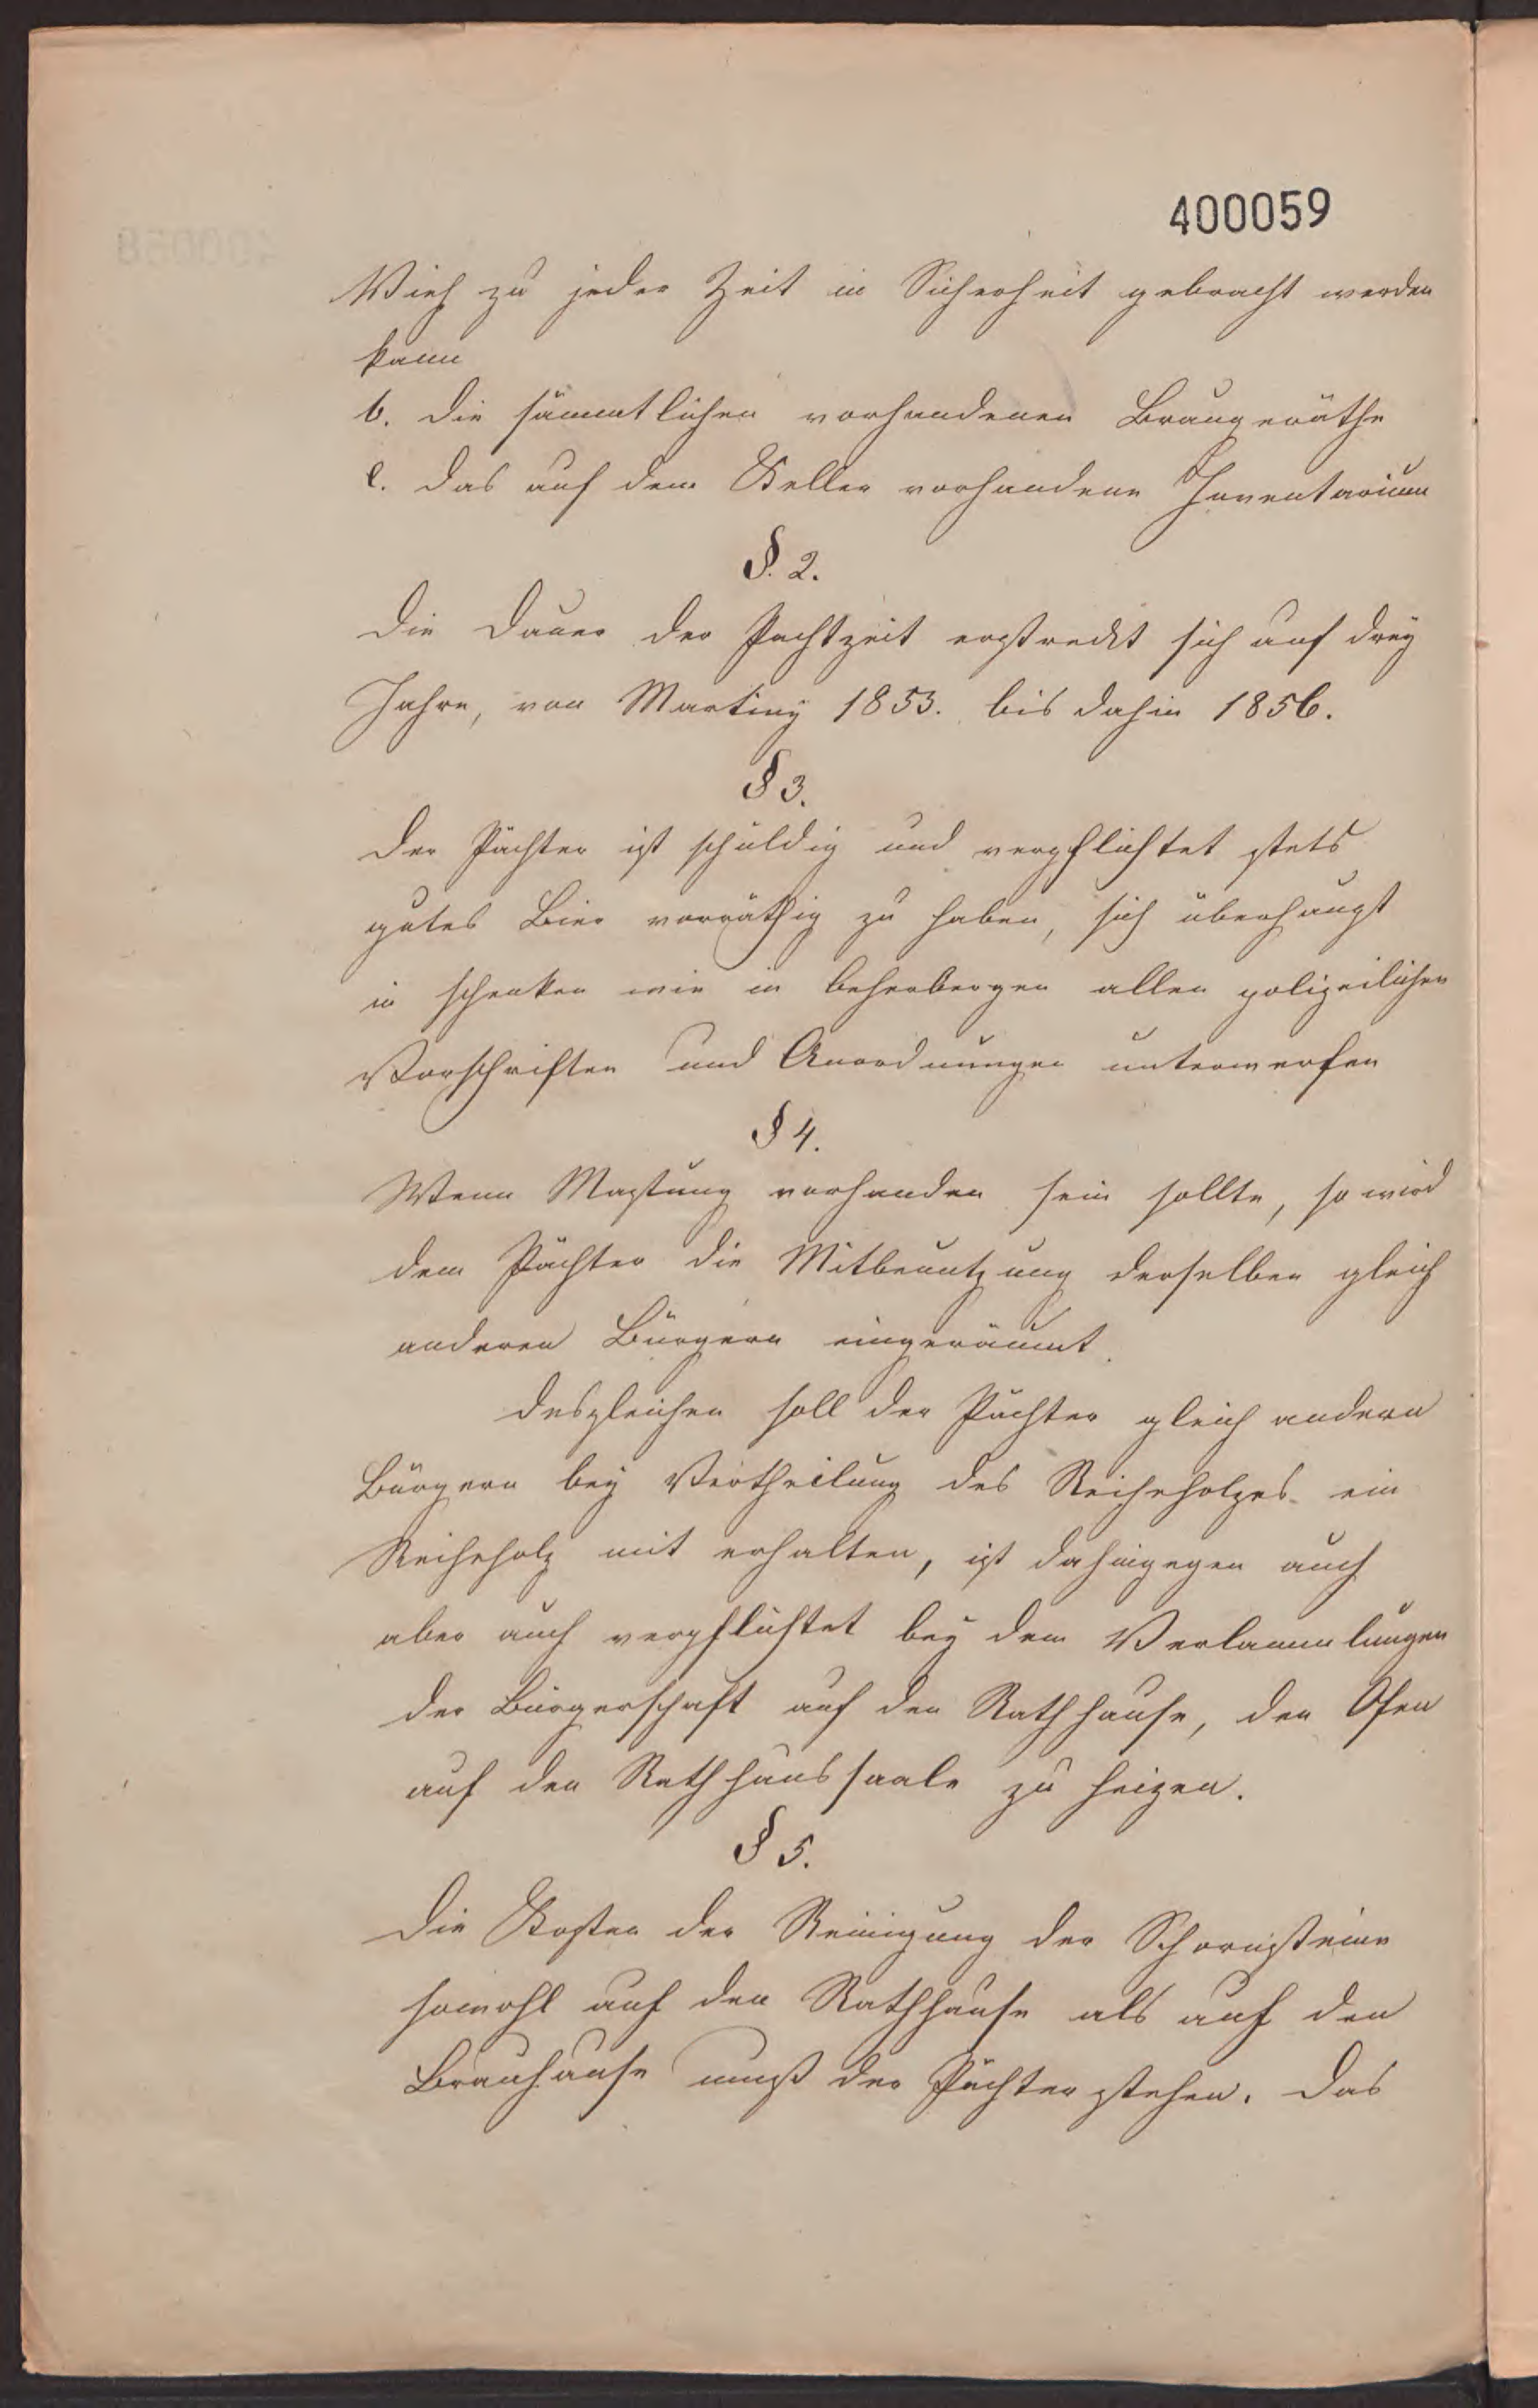 400059
Vieh zu jeder Zeit in Sicherheit gebracht werden
kann
b. die sämmtlichen vorhandenen Braugeräthe
c. das auf dem Keller vorhandene Inventarium
§. 2.
Die Dauer der Pachtzeit erstreckt sich auf drey
Jahre, von Martiny 1853. bis dahin 1856.
§ 3.
Der Pächter ist schuldig und verpflichtet stets
gutes Bier vorräthig zu haben, sich überhaupt
in schenken wie in beherbergen allen polizeilichen
Vorschriften und Anordnungen unterwerfen
§ 4.
Wenn Mastung vorhanden sein sollte, so wird
dem Pächter die Mitbenutzung derselben gleich
anderen Bürgern eingeräumt.
Desgleichen soll der Pächter gleich andern
Bürgern bey Vertheilung des Reiheholzes ein
Reiheholz mit erhalten, ist dahingegen auch
aber auch verpflichtet bey dem Versammlungen
der Bürgerschaft auf den Rathhause, den Ofen
auf den Rathhaussaale zu heizen.
§ 5.
Die Kosten der Reinigung der Schornsteine
sowohl auf den Rathhause als auf den
Brauhause muß der Pächter stehen. Das